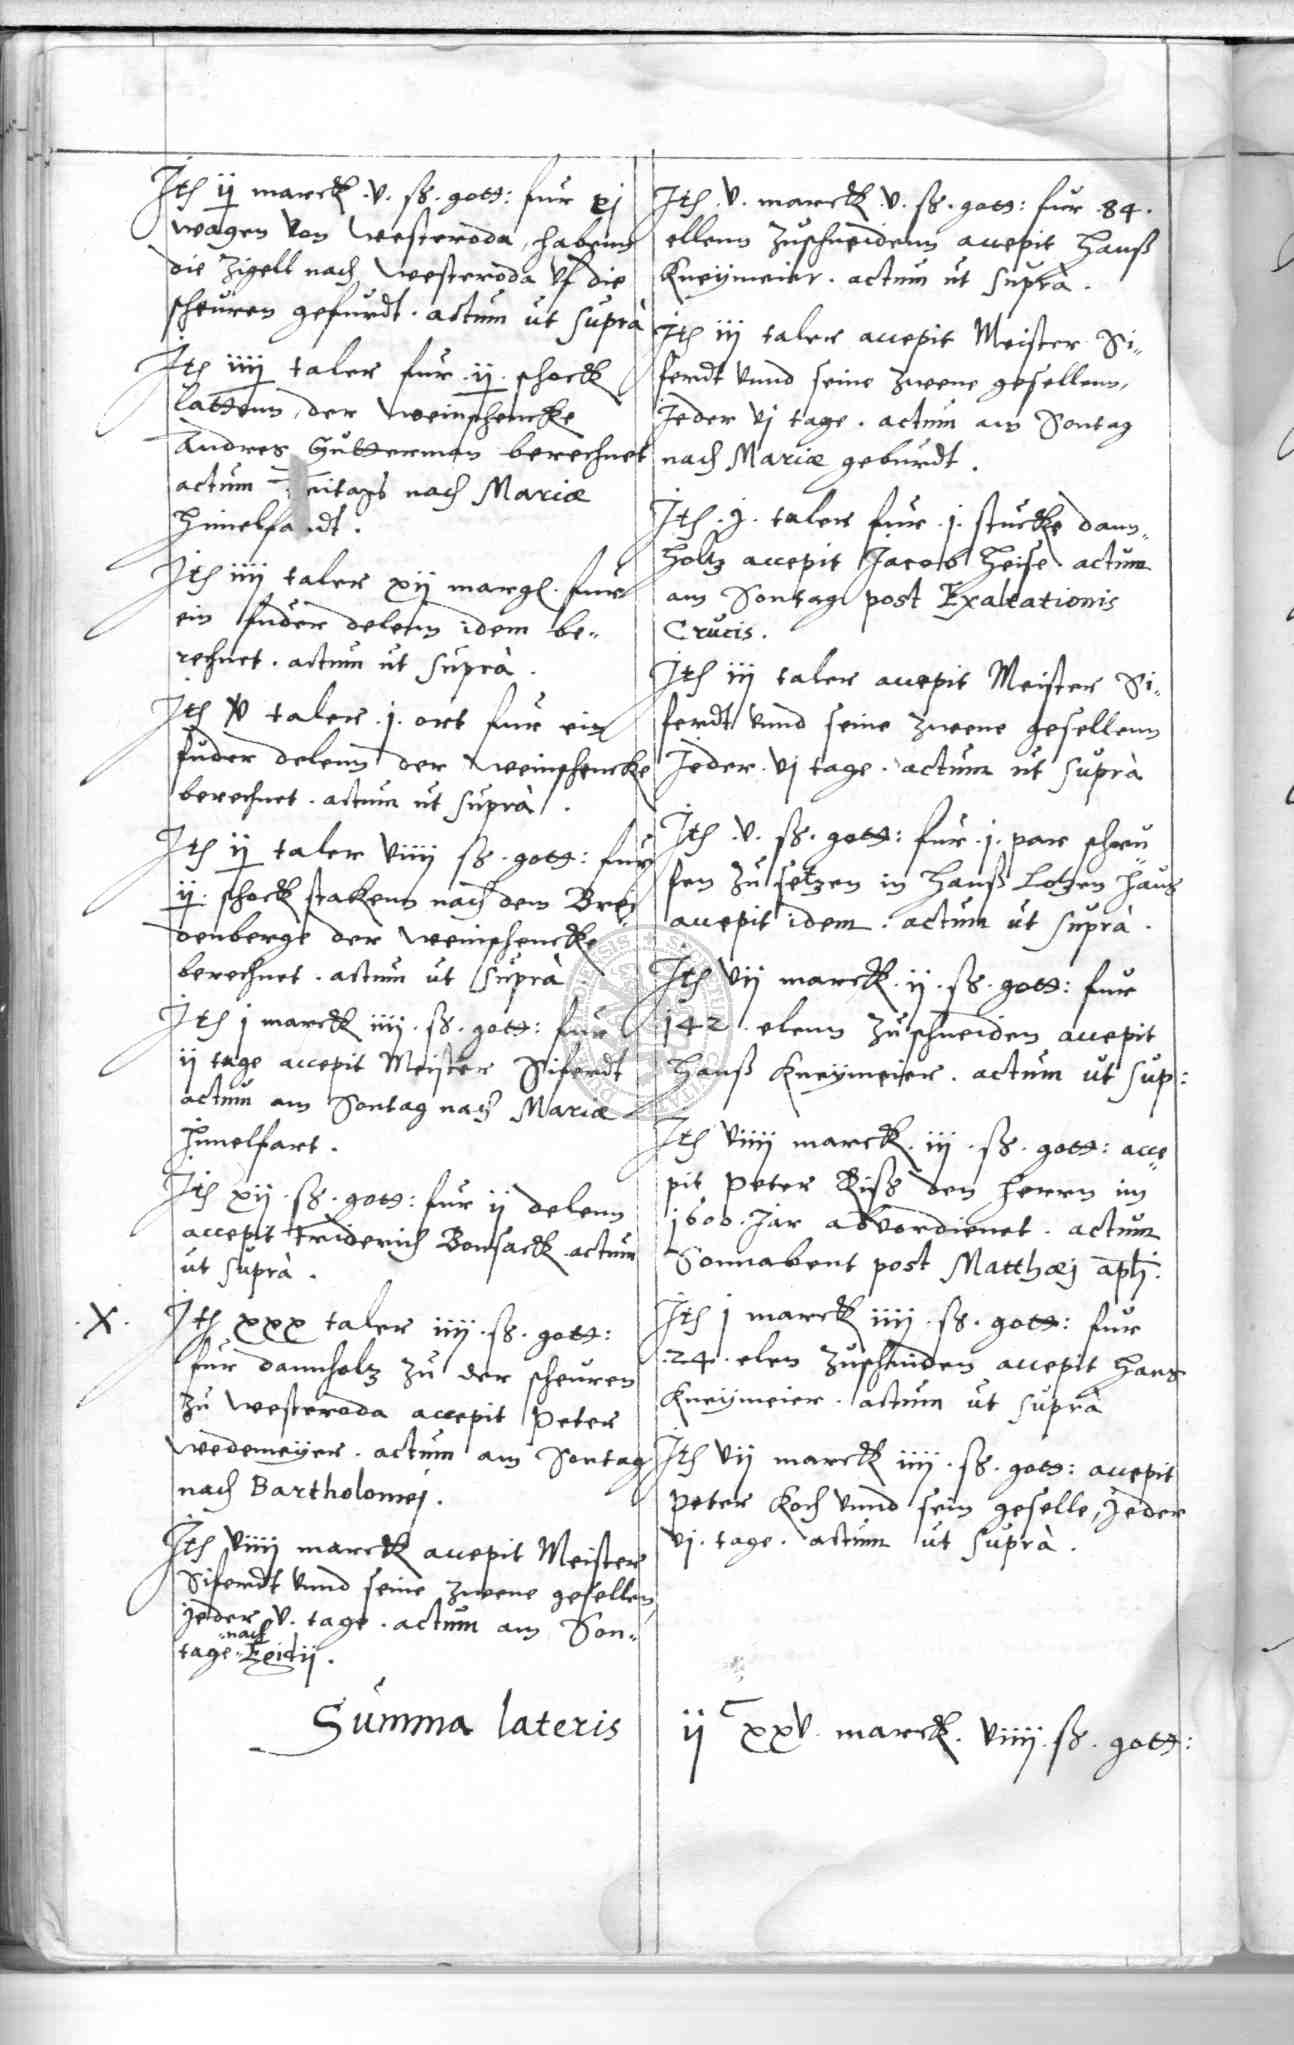 Ith ij marck .v. sz. gott: fur xj
wagen von westeroda, habenn
die Zigell nach westeroda uf die
scheuren gefurdt. actum ut suprà
Ith iiij taler fur .ij. schock
lattenn, der weinschencke
Andres Gutterman berechnet
actum Freitags nach Mariæ
Himelfardt.
Ith iiij taler xij margl. fur
ein fuder delenn idem be„
rechnet. actum ut suprà.
Ith v taler .j. ort fur ein
fuder delenn der weinschencke
berechnet. actum ut suprà.
Ith ij taler viiij sz. gott: fur
ij. schock stakenn nach dem Brei
denberge der weinschencke
berechnet. actum ut suprà
Ith j marck iiij. sz. gott: fur
ij tage accepit Meister Siferdt
actum am Sontag nach Mariæ
Himelfart.
Ith xij. sz. gott: fur ij delenn
accepit Friderich Bonsack. actum
ut suprà.
.X. Ith xxx taler iiij. sz. gott:
fur dannholtz zu der scheuren
zu westeroda accepit Peter
wedemeyer. actum am Sontag
nach Bartholomej.
Ith viiij marck accepit Meister
Siferdt unnd seine zwene gesellen,
jeder v. tage. actum am Son„
tage „nach Egidij.
Ith .v. marck .v. sz. gott: fur .84.
ellenn zuschneidenn accepit Hanß
Kneymeier. actum ut suprà.
Ith iij taler accepit Meister Si„
ferdt unnd seine zwene gesellenn,
Jeder vj tage. actum am Sontag
nach Mariæ geburdt.
Ith .j. taler fur .j. stucke dann„
holtz accepit Jacob Heise actum
am Sontag post Exaltationis
Crucis.
Ith iij taler accepit Meister Si„
ferdt unnd seine zwene gesellenn
Jeder. vj tage. actum ut suprà
Ith .v. sz. gott: fur .j. par
zu setzen in Hanß Lotzen Hauß
accepit idem. actum ut suprà.
Ith vij marck .ij. sz. gott: fur
142. elenn zuschneiden accepit
Hanß Kneymeier. actum ut sup:
Ith viiij marck. iij. sz. gott: acce„
pit Peter den Herrn im
1600. Jar abvordienet. actum
Sonnabent post Matthæj apli.
Ith j marck iiij. sz. gott: fur
.24. elen zuschniden accepit Hans
Kneymeier. actum ut suprà
Ith vij marck iiij. sz. gott: accepit
Peter Koch unnd sein geselle, Jeder
vj. tage. actum ut suprà.
Summa lateris ij C xxv. marck. viiij. sz. gott: